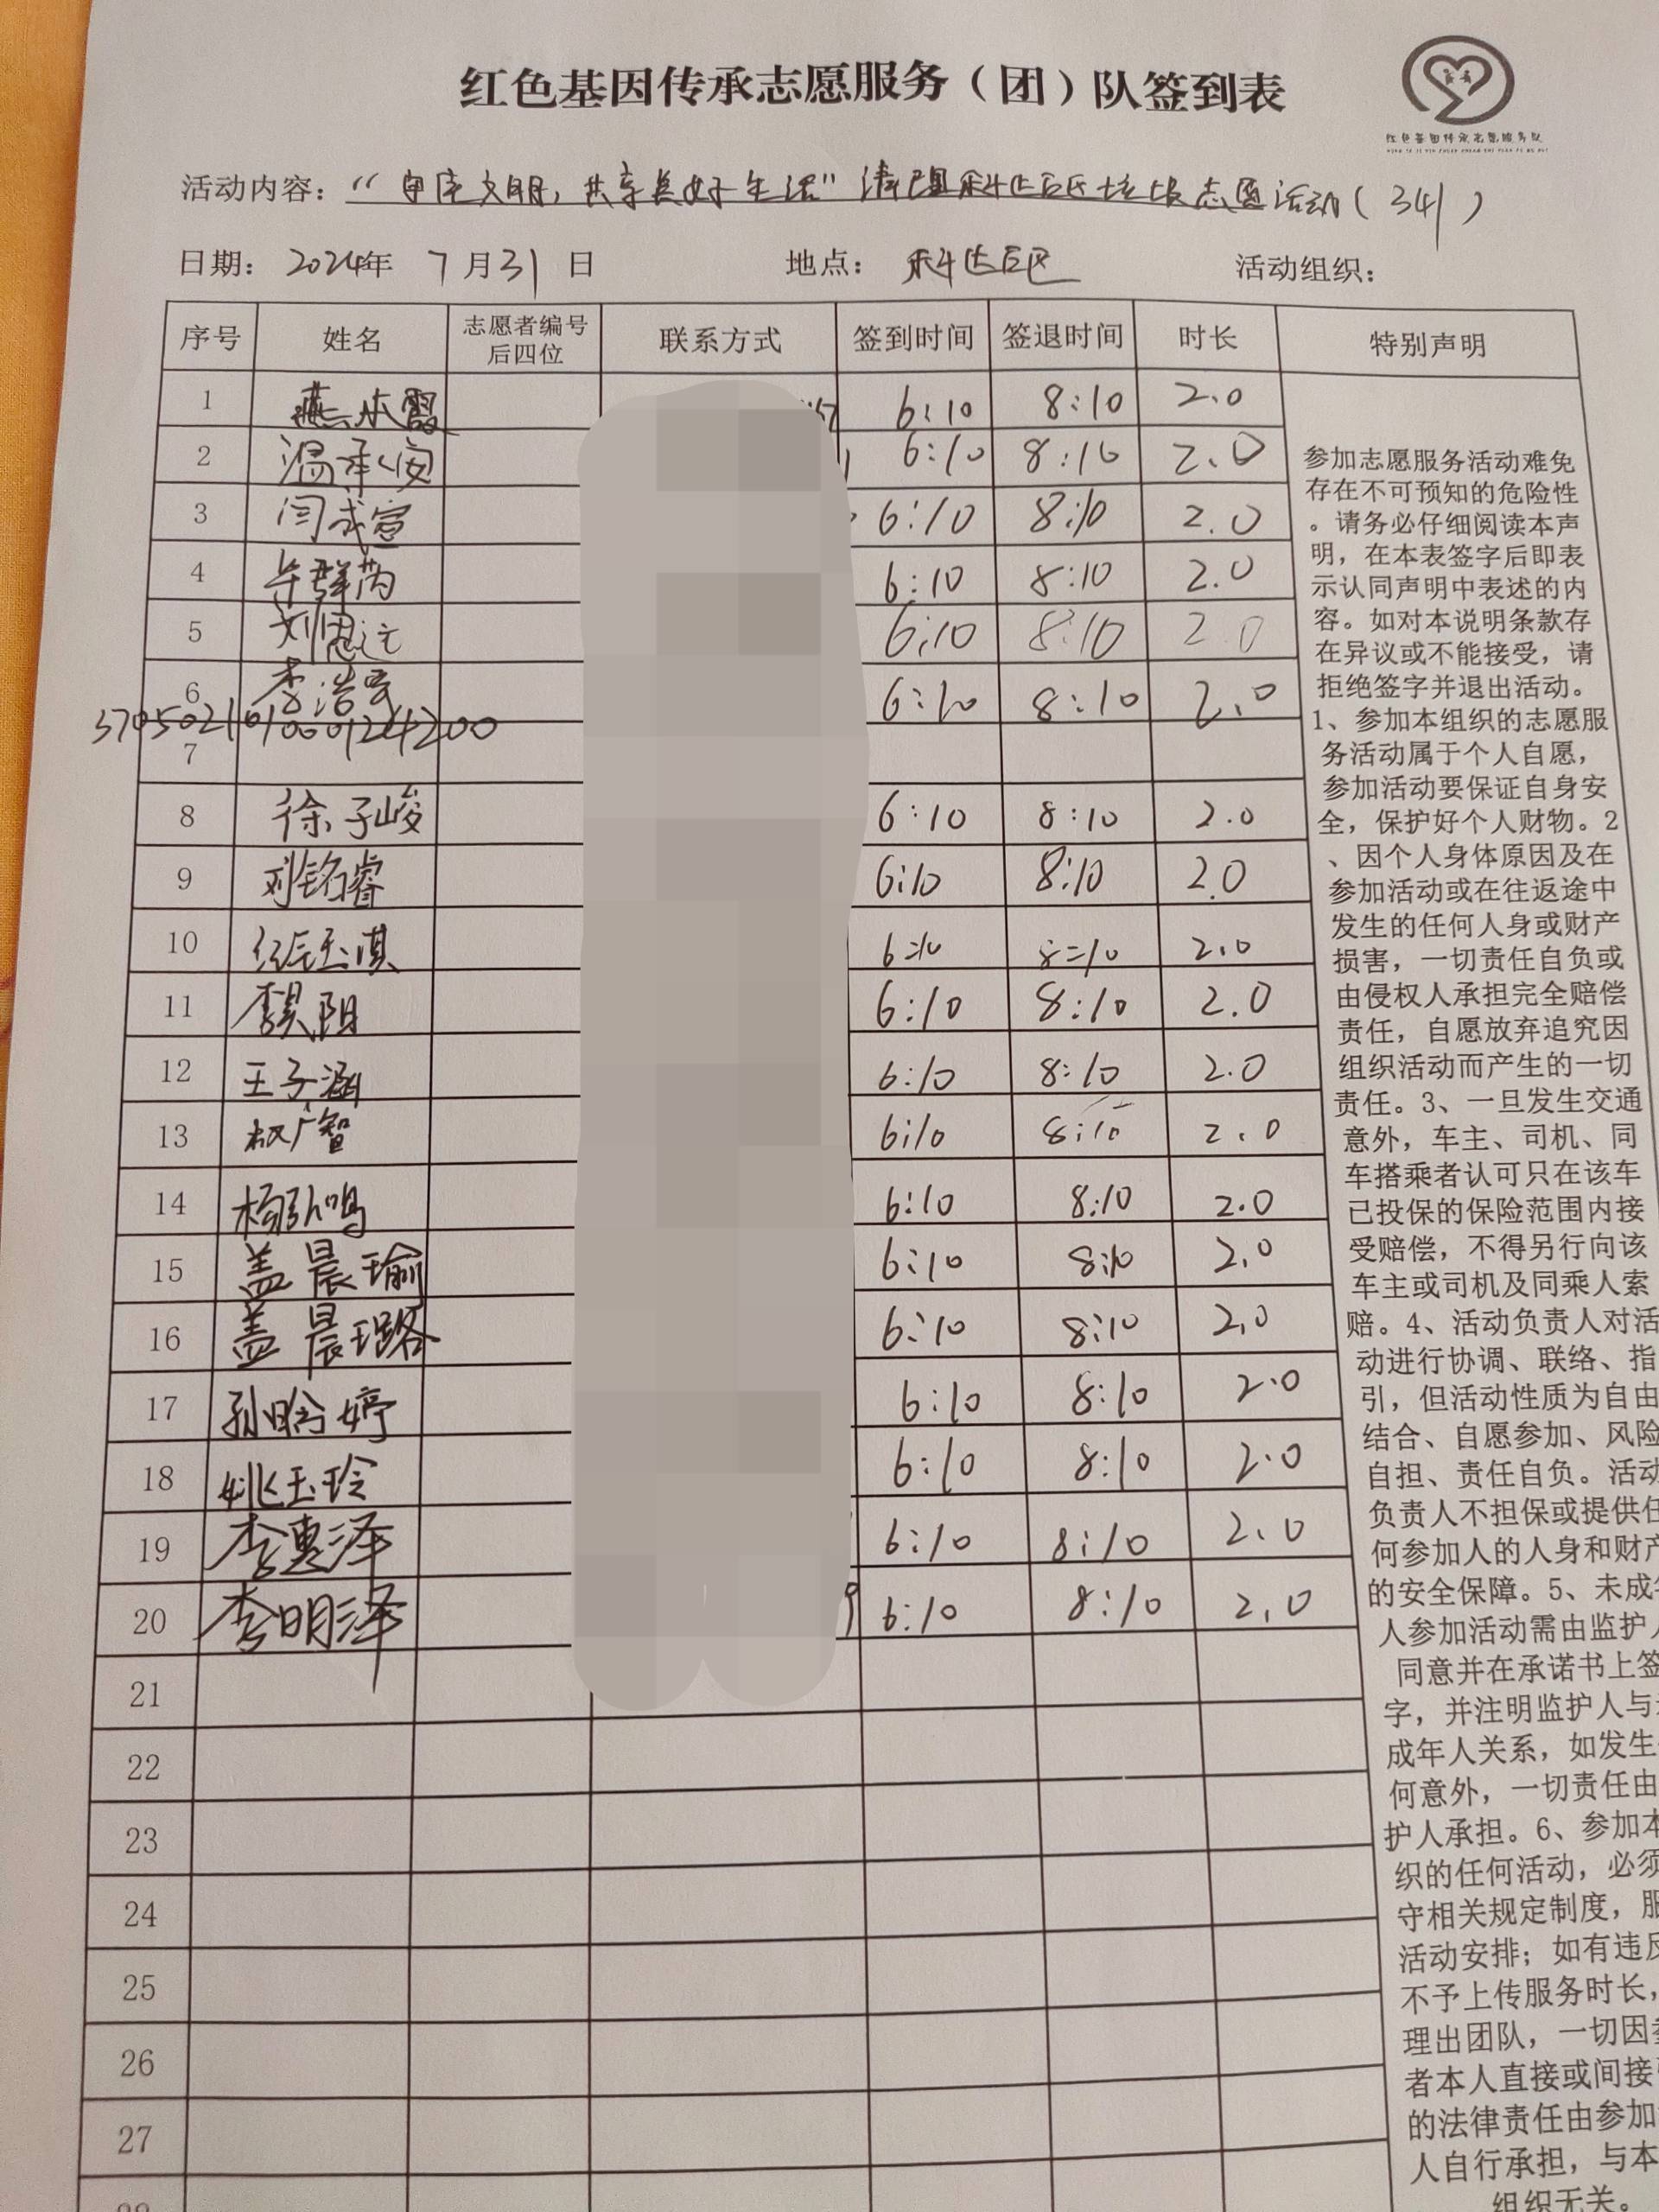 红色基因传承志愿服务（团）队签到表
红色基因传承志愿服务队
活动内容：“ 文明，共享美好生活”清理科达后区垃圾志愿活动（34）
日期：2024年 7月31日 地点：科达后区 活动组织：
序号 姓名 志愿者编号后四位 联系方式 签到时间 签退时间 时长 特别声明
1 燕 霞 6:10 8:10 2.0
2 温承 6:10 8:10 2.0
3 闫成宣 6:10 8:10 2.0
4 毕群芮 6:10 8:10 2.0
5 刘思 6:10 8:10 2.0
6 李浩 6:10 8:10 2.0
7
8 徐子峻 6:10 8:10 2.0
9 刘铭睿 6:10 8:10 2.0
10 任玉淇 6:10 8:10 2.0
11 李昊阳 6:10 8:10 2.0
12 王子涵 6:10 8:10 2.0
13 权广智 6:10 8:10 2.0
14 杨弘鸣 6:10 8:10 2.0
15 盖晨瑜 6:10 8:10 2.0
16 盖晨璐 6:10 8:10 2.0
17 孙晗婷 6:10 8:10 2.0
18 姚玉玲 6:10 8:10 2.0
19 李惠泽 6:10 8:10 2.0
20 李明泽 9 6:10 8:10 2.0
21
22
23
24
25
26
27
参加志愿服务活动难免
存在不可预知的危险性
。请务必仔细阅读本声
明，在本表签字后即表
示认同声明中表述的内
容。如对本说明条款存
在异议或不能接受，请
拒绝签字并退出活动。
1、参加本组织的志愿服
务活动属于个人自愿，
参加活动要保证自身安
全，保护好个人财物。2
、因个人身体原因及在
参加活动或在往返途中
发生的任何人身或财产
损害，一切责任自负或
由侵权人承担完全赔偿
责任，自愿放弃追究因
组织活动而产生的一切
责任。3、一旦发生交通
意外，车主、司机、同
车搭乘者认可只在该车
已投保的保险范围内接
受赔偿，不得另行向该
车主或司机及同乘人索
赔。4、活动负责人对活
动进行协调、联络、指
引，但活动性质为自由
结合、自愿参加、风险
自担、责任自负。活动
负责人不担保或提供任
何参加人的人身和财产
的安全保障。5、未成年
人参加活动需由监护人
同意并在承诺书上签
字，并注明监护人与
成年人关系，如发生
何意外，一切责任由
护人承担。6、参加本
织的任何活动，必须
守相关规定制度，服
活动安排；如有违反
不予上传服务时长，
理出团队，一切因参
者本人直接或间接
的法律责任由参加
人自行承担，与本
组织无关。